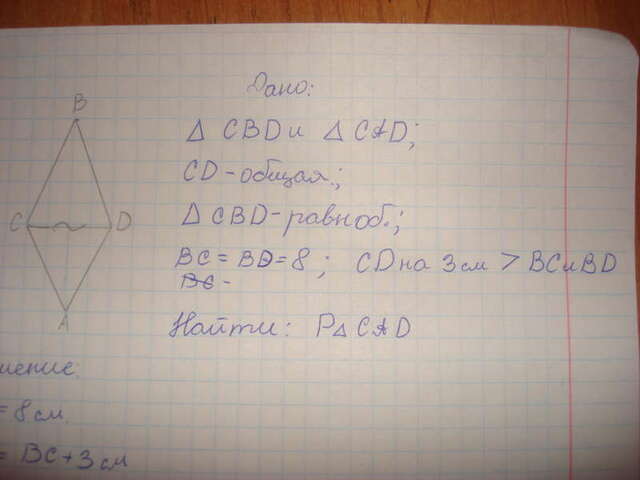 Дано:
B
△ CBD и △ CAD;
CD - общая.;
△ CBD - равноб.;
C D
BC = BD = 8 ; CD на 3 см > BC и BD
BC -
A
Найти: P△ CAD
шение:
= 8 см.
= BC + 3 см